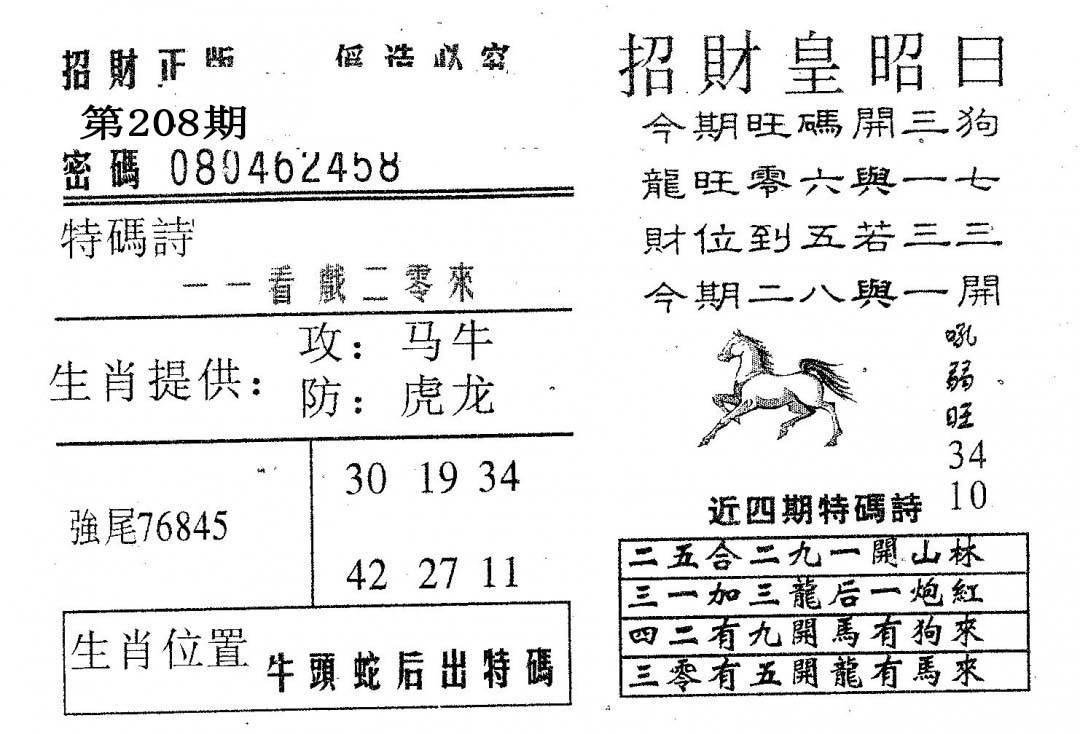 招財正版 偽造必究
第208期
密碼 080462458
特碼詩
一一看戲二零來
生肖提供：
攻：马牛
防：虎龙
強尾76845
30 19 34
42 27 11
生肖位置
牛頭蛇后出特碼
招財皇昭日
今期旺碼開三狗
龍旺零六與一七
財位到五若三三
今期二八與一開
吼
弱
旺
34
10
近四期特碼詩
二五合二九一開山林
三一加三龍后一炮紅
四二有九開馬有狗來
三零有五開龍有馬來